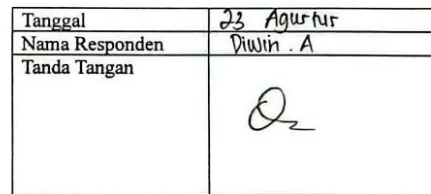 Tanggal 23 Agustus
Nama Responden Diwin . A
Tanda Tangan